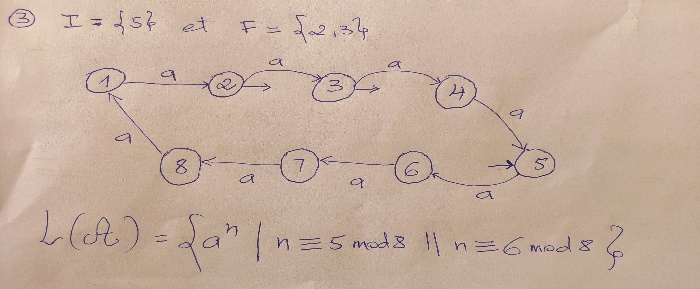 ③ I = {5} et F = {2,3}
1 a 2 a 3 a 4
a a
8 a 7 a 6 a 5
L(A) = {aⁿ | n ≡ 5 mod 8 || n ≡ 6 mod 8}